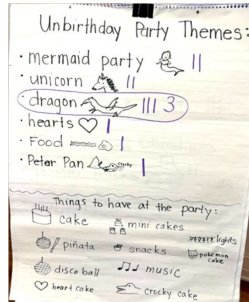 Unbirthday Party Themes:
• mermaid party ||
• unicorn ||
dragon ||| 3
• hearts |
• Food |
• Peter Pan |
Things to have at the party:
cake
mini cakes
lights
piñata
snacks
pokemon cake
disco ball
music
heart cake
crocky cake